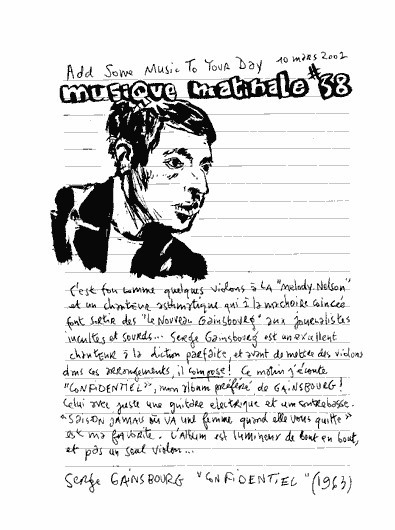 Add Some Music To Your Day 10 mars 2002
musique matinale #38
C'est fou comme quelques violons à LA "Melody Nelson"
et un chanteur asthmatique qui à la machoire coincée
font sortir des "le Nouveau Gainsbourg" aux journalistes
incultes et sourds... Serge Gainsbourg est un excellent
chanteur à la diction parfaite, et avant de mettre des violons
dans ses arrangements, il compose! Ce matin j'écoute
"CONFIDENTIEL", mon album préféré de GAINSBOURG!
Celui avec juste une guitare electrique et une contrebasse.
"SAISON JAMAIS OÙ VA une femme quand elle vous quitte"
est ma favorite. L'album est lumineux de bout en bout,
et pas un seul violon...
Serge GAINSBOURG "CONFIDENTIEL" (1963)